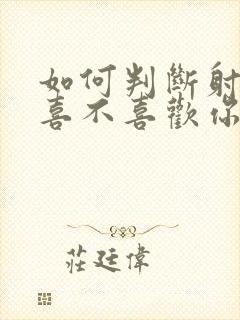 如何判斷射
喜不喜歡你
莊廷偉